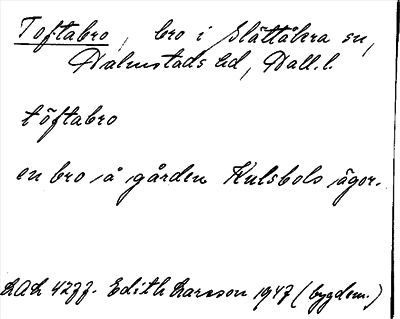 Toftabro, bro i Slättåkra sn,
Halmstads hd, Hall.l.
tõftabro
en bro å gården Kulsbols ägor.
LAL 4277. Edith Larsson 1947 (bygdem.)